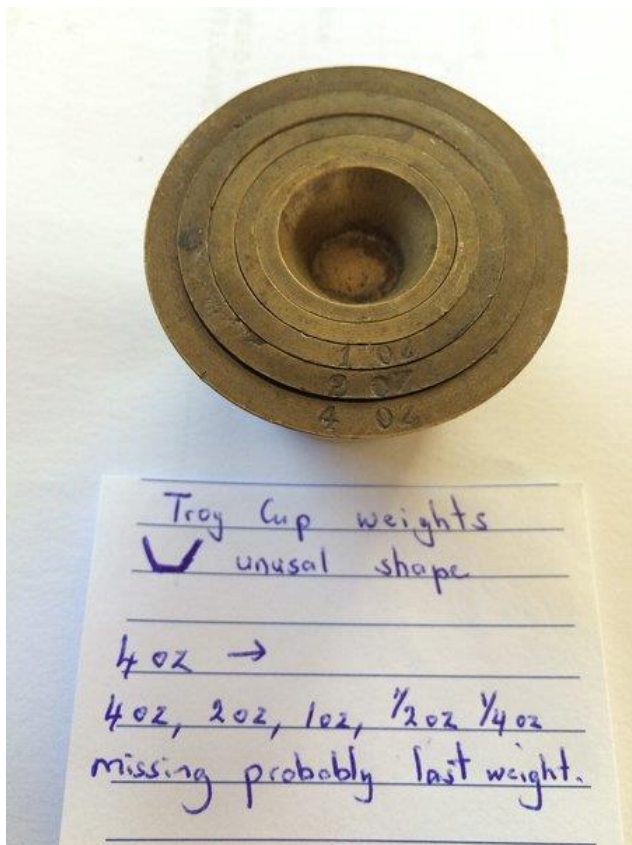 1 OZ
2 OZ
4 OZ
Troy Cup weights
unusal shape
4 oz →
4oz, 2oz, 1oz, 1/2oz 1/4oz
missing probably last weight.